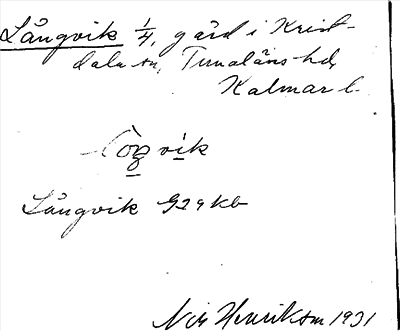 Långvik 1/4, gård i Krist-
dala sn, Tunaläns hd,
Kalmar l.
Långvik G24 Kb
Nils Henriksson 1931